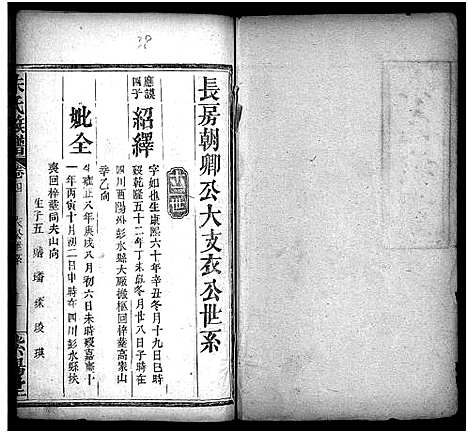 長房朝卿公大支衣公世系
十二世
應謨四子
紹繹
字如也生康熙六十年辛丑冬月十九日巳時
歿乾隆五十二年丁未歲冬月廿八日子時在
四川酉陽州彭水縣大廠搬柩回梓葬高岽山
辛乙向
妣全
生雍正八年庚戌八月初六日未時歿嘉慶十
一年丙寅十月初二日申時在四川彭水縣扶
喪回梓葬同夫山向
生子五
朱氏族譜
卷四
紫陽堂